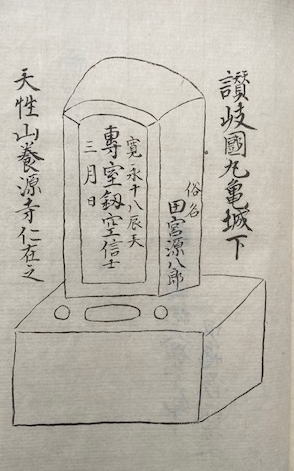 讃岐國丸亀城下
俗名
田宮源八郎
寛永十八辰天
專室釼空信士
三月日
天性山養源寺仁在之